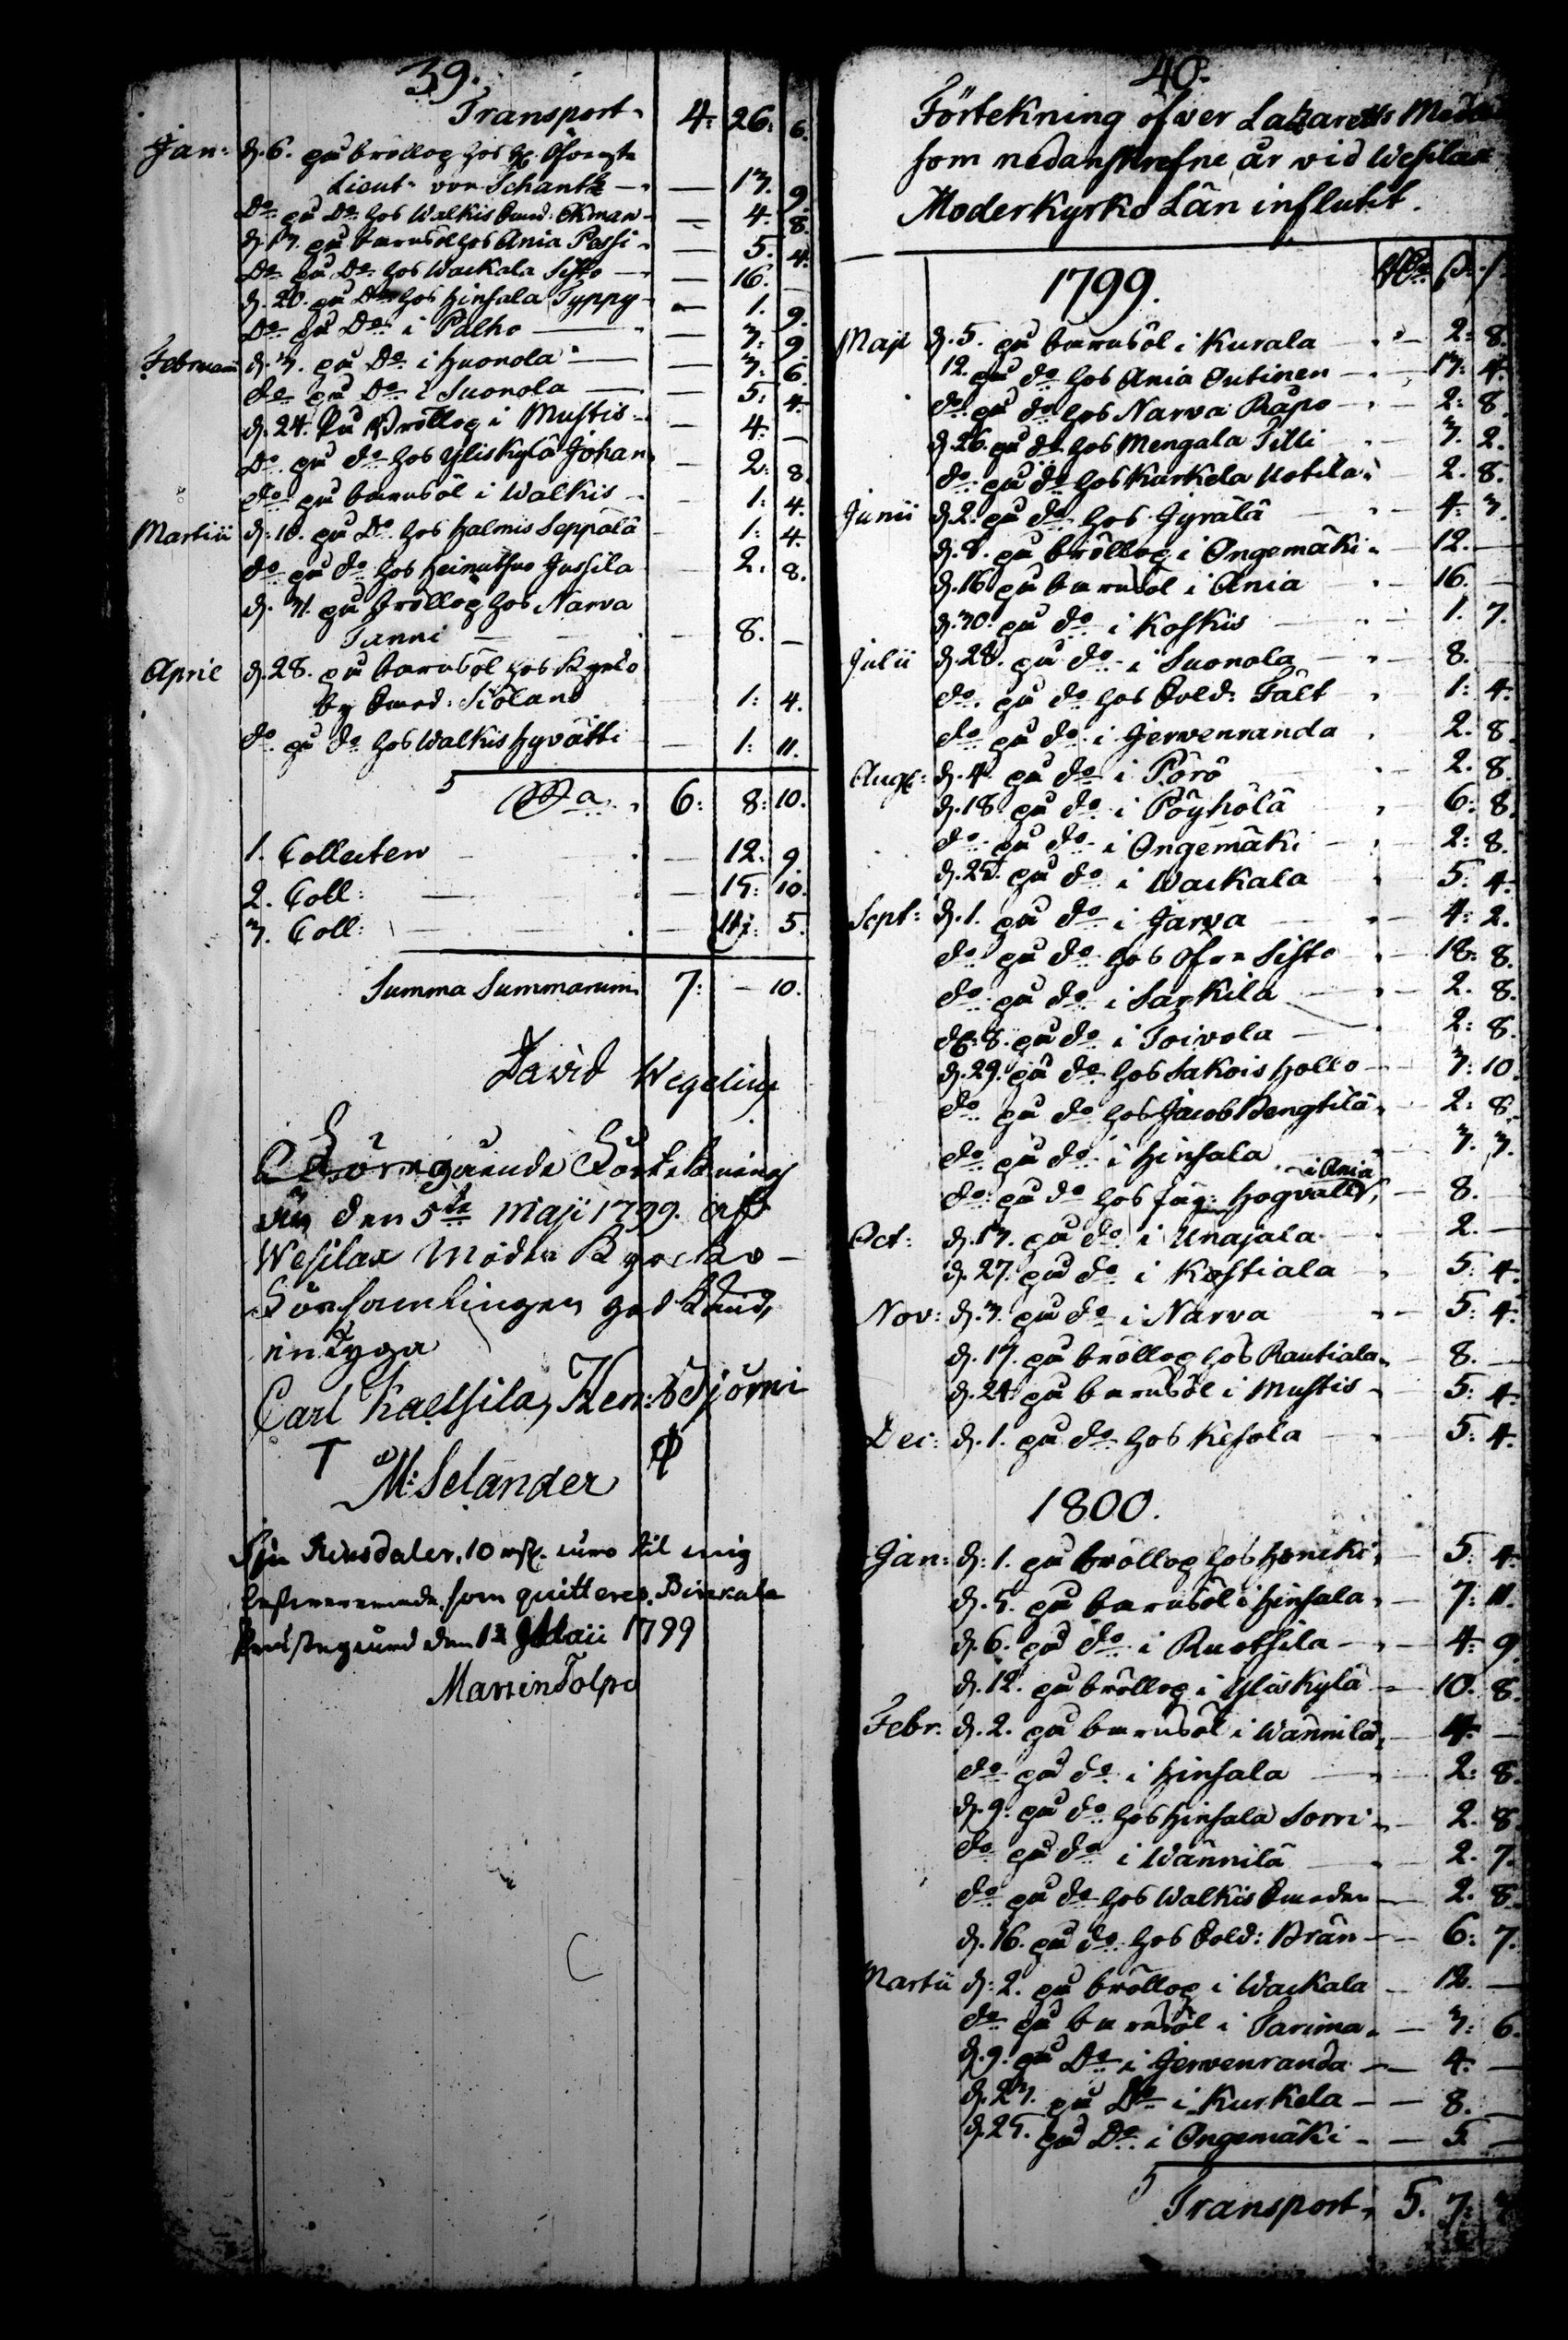 39.
Transport 4: 26: 6.
Jan: d. 6. på bröllop hos H. Öfverste
Lieut. von Schantz — 13. 9.
Do på Do hos Walkis Ökman — 4. 8.
d. 13. på barnsöl hos Ania Passi — 5. 4.
Do på Do hos Wackala Sisto — 16. —
d. 20. på Do hos Hinsala Typpy — 1. 9.
Do på Do i Palho — 3: 9.
Februarii d. 3. på Do i Huonola — 3: 6.
do på Do i Suonola — 5: 4.
d. 24. På Bröllop i Mustis — 4: —
Do på do hos Yliskylä Johan — 2: 8.
do på barnsöl i Walkis — 1: 4.
Martii d: 10. på Do hos Halmis Seppälä — 1: 4.
do på do hos Heinussuo Jussila — 2. 8.
d. 31. på bröllop hos Narva
Tanni — 8. —
April d. 28. på barnsöl hos Kyrko
by Siöland 1: 4.
do på do hos Walkis Hyvätti — 1: 11.
Sa 6: 8: 10.
1. Collecten — 12. 9.
2. Coll: — 15: 10.
3. Coll: — 11: 5.
Summa Summarum 7: — 10.
David Wegelius
Föregående Förtekning
den 5te Maji 1799. af
Wesilax Moder Kyrko-
Församlingen godkänd,
intyga
Carl Kaltsila, Hen: Björni
M: Selander
Sju Riksdaler, 10 äro til mig
som quitteres. Birkala
Prästegård den 12 Maii 1799
Martin Tolpo
40.
Förtekning öfver Lazaretts Medel
som nedanskrefne år vid Wesilax
Moderkyrko Län influtit.
1799. Rdr s. r.
Maji d. 5. på barnsöl i Kurala — 2: 8.
12. på do hos Ania Outinen — 13: 4.
do på do hos Narva Råpo — 2: 8.
d. 26. på do hos Mengala Tilli — 3. 2.
do på do hos Karkela Uotila — 2. 8.
Junii d. 2. på do hos Jyrälä — 4: 3.
d. 9. på bröllop i Ongemäki — 12. —
d. 16 på barnsöl i Ania — 16. —
d. 30. på do i Koskis — 1. 7.
Julii d. 28. på do i Suonola — 8. —
do på do hos Sold: Fält 1: 4.
do på do i Jervenranda 2. 8.
Aug: d. 4. på do i Pörö — 2. 8.
d. 18. på do i Pöyhölä 6: 8.
do på do i Ongemäki — 2: 8.
d. 25. på do i Wackala 5: 4.
Sept: d. 1. på do i Jarva — 4: 2.
do på do hos Ofre Sisto — 18: 8.
do på do i Sarkila — 2. 8.
d. 8. på do i Toivola — 2: 8.
d. 29. på do hos Sakois Hollo — 3: 10.
do på do hos Jacob Bengtilä — 2: 8.
do på do i Hinsala 3. 3.
do på do hos Jäg: Hogvall i Ania — 8. —
Oct: d. 13. på do i Unajala — 2. —
d. 27. på do i Kostiala 5: 4.
Nov: d. 3. på do i Narva — 5: 4.
d. 17. på bröllop hos Rautiala — 8. —
d. 24. på barnsöl i Mustis — 5: 4.
Dec: d. 1. på do hos Kesola — 5: 4.
1800.
Jan: d. 1. på bröllop hos — 5: 4.
d. 5. på barnsöl i Hinsala — 7: 11.
d. 6. på do i Ruotsila — 4: 9.
d. 12. på bröllop i Yliskylä — 10. 8.
Febr. d. 2. på barnsöl i Wännilä — 4. —
do på do i Hinsala — 2: 8.
d. 9. på do hos Hinsala Sorri — 2. 8.
do på do i Wännilä — 2. 7.
do på do hos Walkis — 2. 8.
d. 16. på do hos Sold: Brän — 6: 7.
Martii d: 2. på bröllop i Wackala — 12. —
do på barnsöl i Tarima — 3: 6.
d. 9. på Do i Jervenranda — 4. —
d. 23. på Do i Kurkela — 8. —
d. 25. på Do i Ongemäki — 5. —
Transport 5. 7: